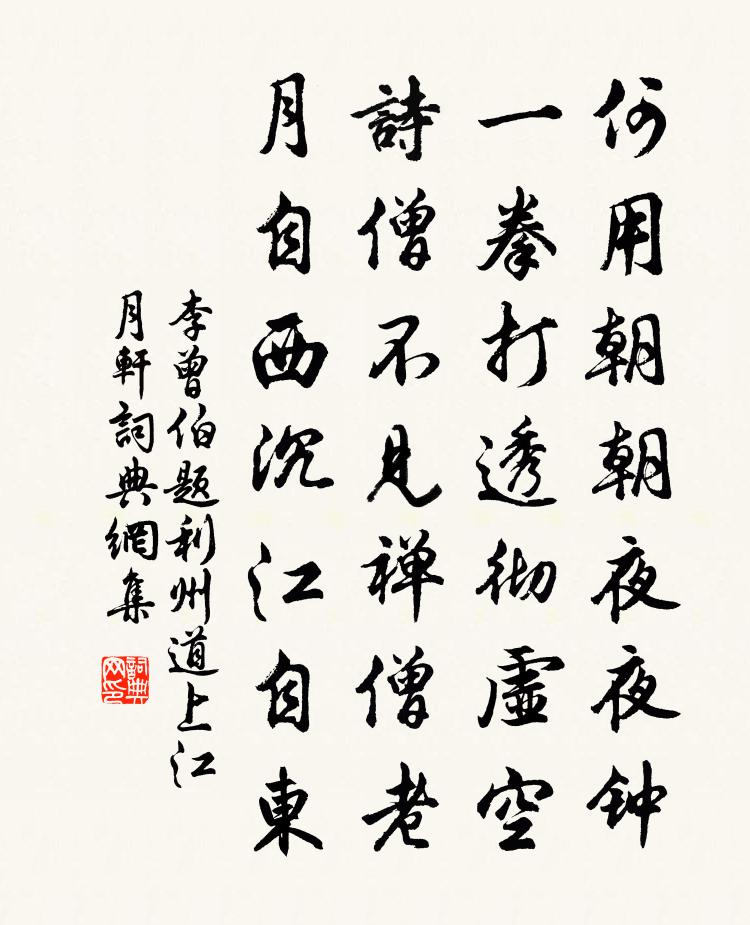 何用朝朝夜夜钟
一拳打透彻虚空
詩僧不見禅僧老
月自西沉江自東
李曾伯題利州道上江
月軒詞典網集
詞典
网印